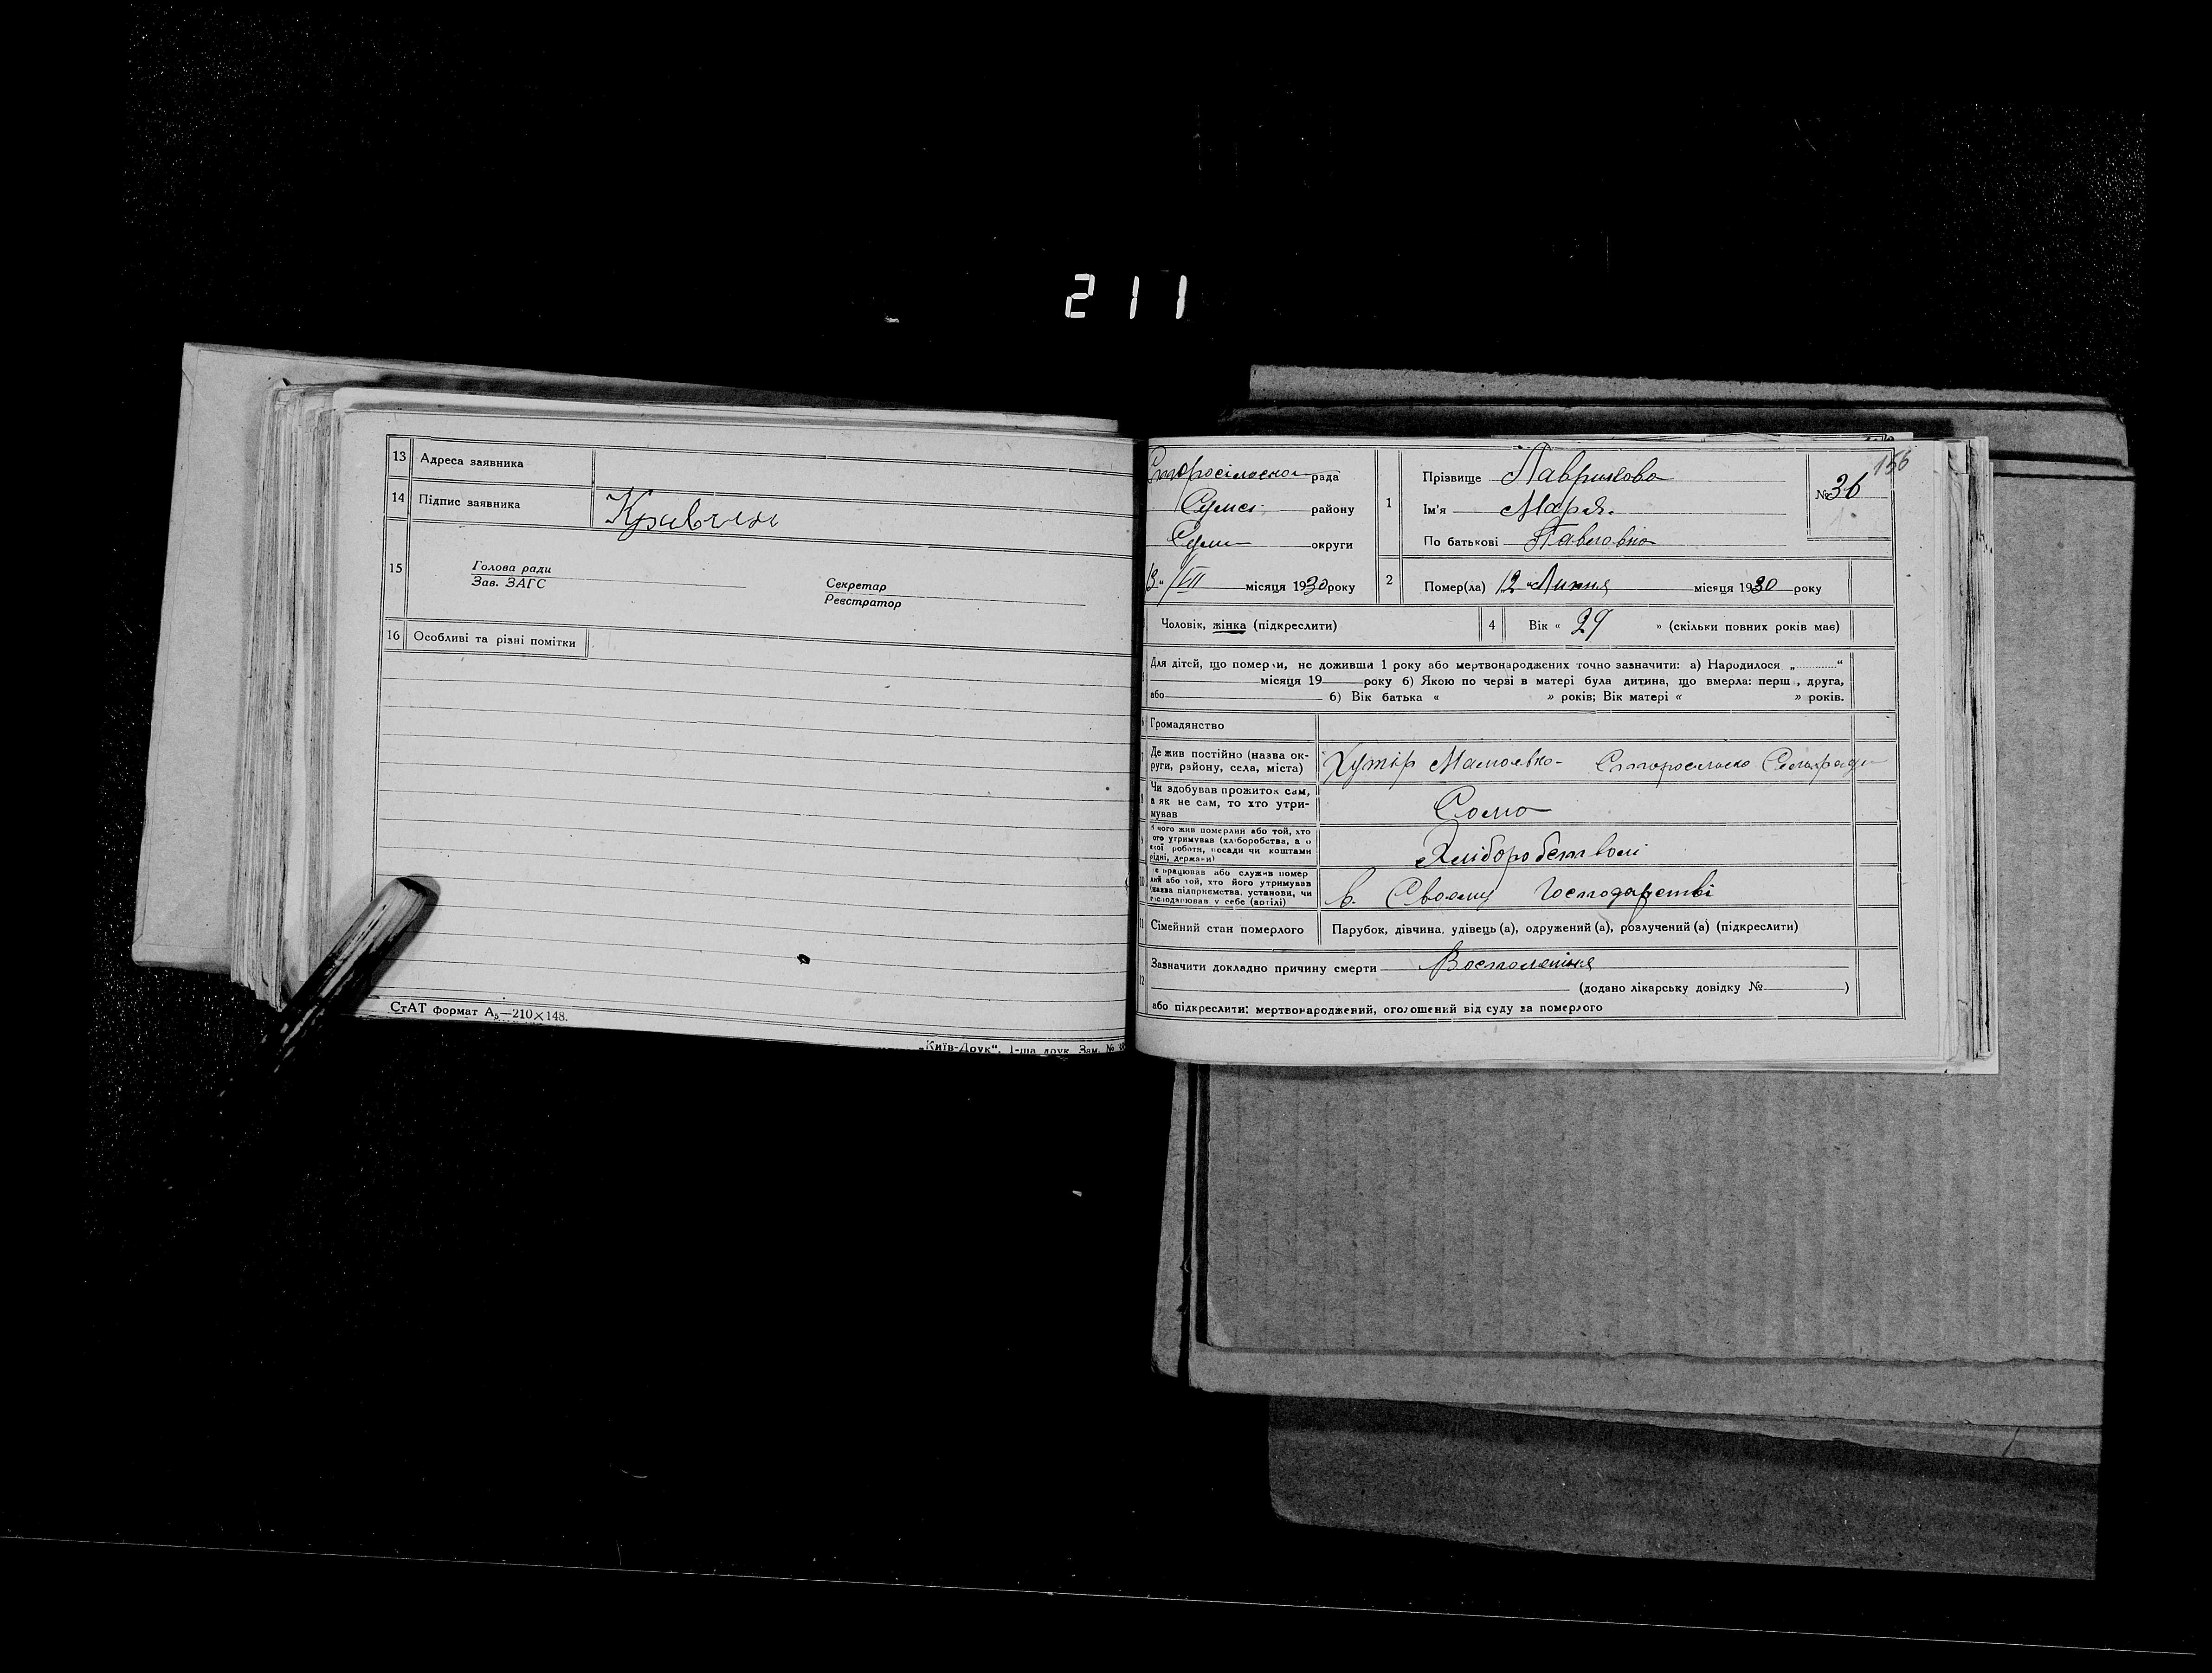 211
13 Адреса заявника
14 Підпис заявника
15 Голова ради
Зав. ЗАГС
Секретар
Реєстратор
16 Особливі та різні помітки
СтАТ формат А₅—210×148.
„Київ-Друк“. 1-ша друк. Зам. №
156
рада
району
Суми округи
VII місяця 1930 року
1 Прізвище Лаврикова
Ім'я Марія
По батькові Павловна
№ 36
2 Помер(ла) 12 „ Липня місяця 1930 року
Чоловік, жінка (підкреслити)
4 Вік « 29 » (скільки повних років має)
Для дітей, що померли, не доживши 1 року або мертвонароджених точно зазначити: а) Народилося „ “
місяця 19 року б) Якою по черзі в матері була дитина, що вмерла: перш , друга,
або б) Вік батька « » років; Вік матері « » років.
Громадянство
7 Де жив постійно (назва ок-
руги, району, села, міста) Хутір
Чи здобував прожиток сам,
а як не сам, то хто утри-
мував Само
чого жив померлий або той, хто
ого утримував (хліборобства, а о
роботи, посади чи коштами
рідні, держави) Хліборобством
10 працював або служив помер
лий або той, хто його утримував
(назва підприємства, установи, чи
господарював у себе (артілі) в Своему Господарстві
11 Сімейний стан померлого Парубок, дівчина, удівець (а), одружений (а), розлучений (а) (підкреслити)
12 Зазначити докладно причину смерти Воспаленія
(додано лікарську довідку № )
або підкреслити: мертвонароджений, оголошений від суду за померлого